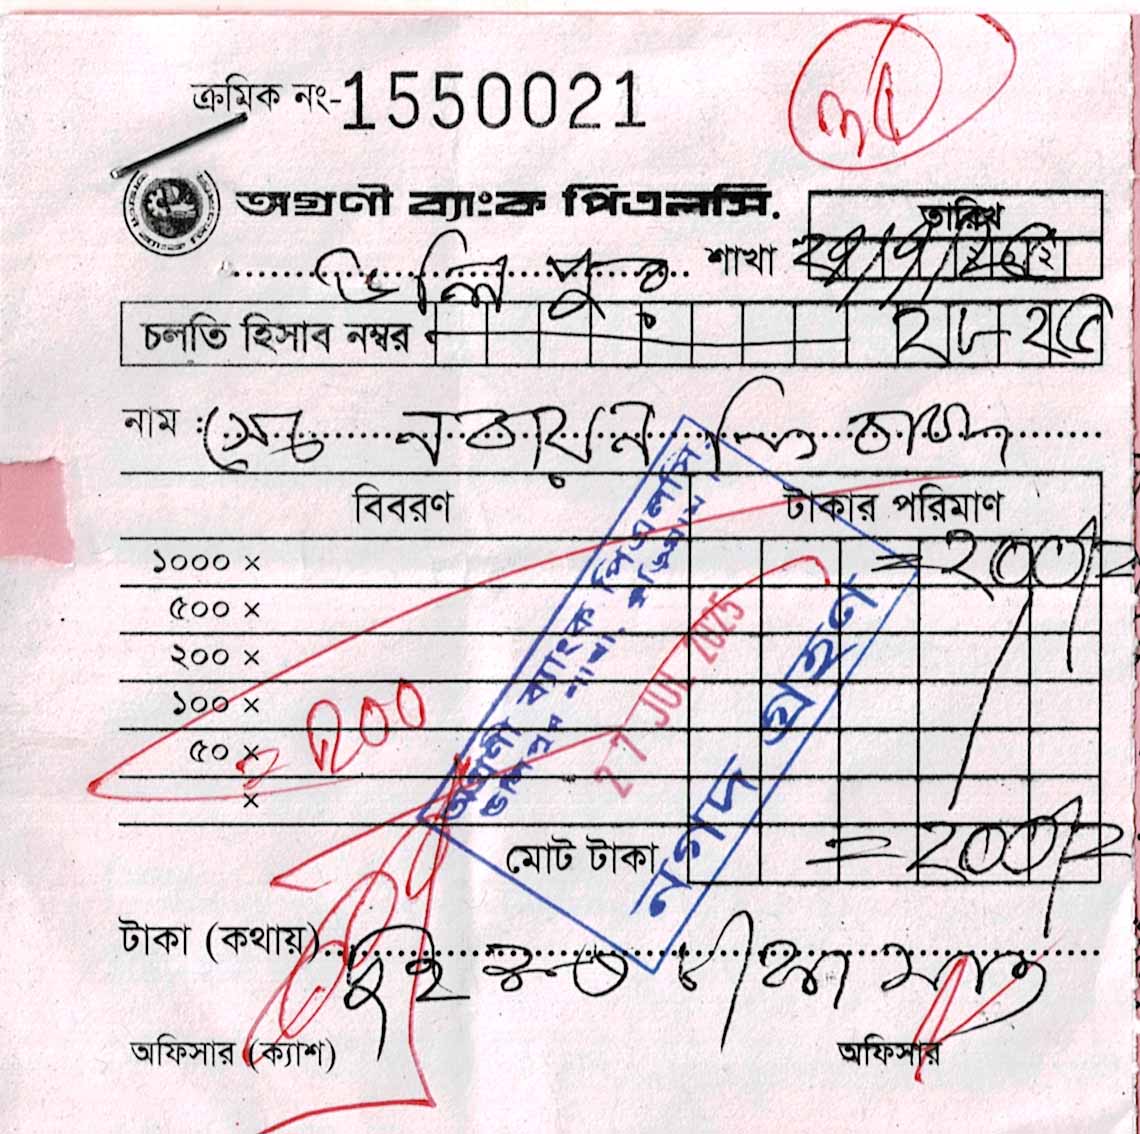 ক্রমিক নং-1550021
৩৫
অগ্রণী ব্যাংক পিএলসি.
তারিখ
উলিপুর শাখা ২৭/৭/২৫
চলতি হিসাব নম্বর ২৮২৫
নাম :
বিবরণ টাকার পরিমাণ
১০০০ × =২০০/=
৫০০ ×
২০০ ×
১০০ ×
৫০ × = 200
×
মোট টাকা =২০০/=
অগ্রণী ব্যাংক পিএলসি.
উলিপুর শাখা, কুড়িগ্রাম।
27 JUL 2025
নগদ গ্রহণ
টাকা (কথায়) দুই শত টাকা মাত্র
অফিসার (ক্যাশ) অফিসার